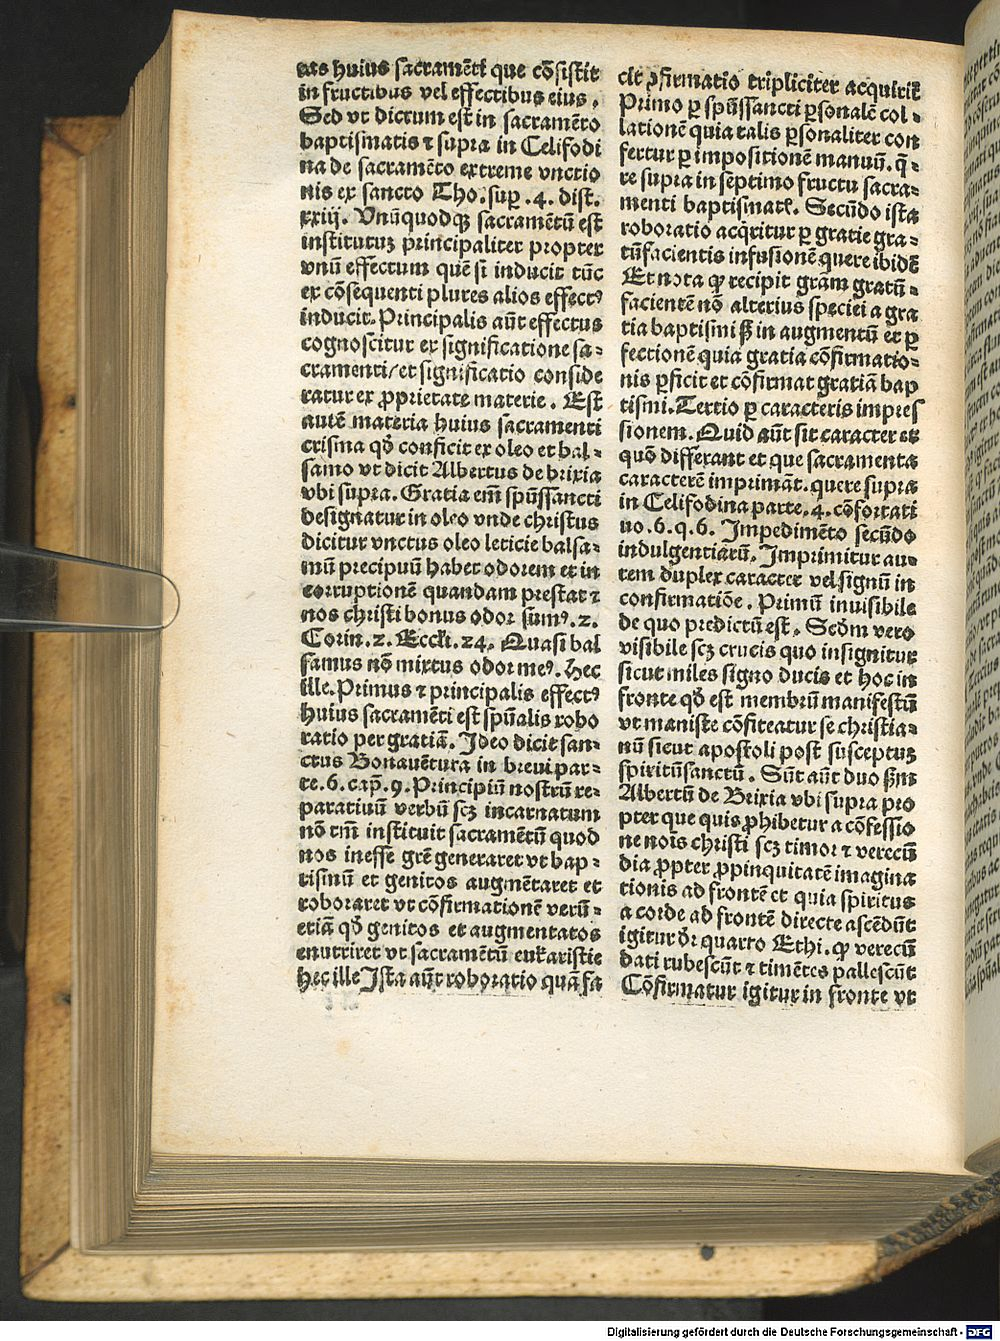 tas huius sacramẽti que cõsistit
in fructibus vel effectibus eius.
Sed vt dictum est in sacramẽto
baptismatis ⁊ supra in Celifodi
na de sacramẽto extreme vnctio
nis ex sancto Tho. suꝑ .4. dist.
xxiij. Vnũquodqꝫ sacramẽtũ est
institutuꝫ principaliter propter
vnũ effectum quẽ si inducit tũc
ex cõsequenti plures alios effectꝰ
inducit. Principalis aũt effectus
cognoscitur ex significatione sa⸗
cramenti/et significatio conside
ratur ex ꝓprietate materie. Est
autẽ materia huius sacramenti
crisma qđ conficit ex oleo et bal⸗
samo vt dicit Albertus de brixia
vbi supra. Gratia em̃ spũssancti
designatur in oleo vnde christus
dicitur vnctus oleo leticie balsa⸗
mũ precipuũ habet odorem et in
corruptionẽ quandam prestat ⁊
nos christi bonus odor sumꝰ. 2.
Corin. 2. Eccli. 24. Quasi bal
samus nõ mixtus odor meꝰ. hec
ille. Primus ⁊ principalis effectꝰ
huius sacramẽti est spũalis robo
ratio per gratiã. Ideo dicit san⸗
ctus Bonauẽtura in breui par⸗
te. 6. cap̃. 9. Principiũ nostrũ re⸗
paratiuũ verbũ scꝫ incarnatum
nõ tm̃ instituit sacramẽtũ quod
nos inesse grẽ generaret vt bap⸗
tismũ et genitos augmẽtaret et
roboraret vt cõfirmationẽ verũ⸗
etiã qđ genitos et augmentatos
enutriret vt sacramẽtũ eukaristie
hec ille Ista aũt roboratio quã fa
cit ꝯfirmatio tripliciter acquirit̃
Primo ꝑ spũssancti ꝑsonalẽ col⸗
lationẽ quia talis ꝑsonaliter con
fertur ꝑ impositionẽ manuũ. q̃⸗
re supra in septimo fructu sacra⸗
menti baptismat̃. Secũdo ista
roboratio acq̃ritur ꝑ gratie gra⸗
tũfacientis infusionẽ quere ibidẽ
Et nota ꝙ recipit grãm gratũ⸗
facientẽ nõ alterius speciei a gra
tia baptismi sꝫ in augmentũ et ꝑ
fectionẽ quia gratia cõfirmatio⸗
nis ꝑficit et cõfirmat gratiã bap
tismi. Tertio ꝑ caracteris impres
sionem. Quid aũt sit caracter et
quõ differant et que sacramenta
caracterẽ imprimãt. quere supra
in Celifodina parte. 4. cõfortati
uo. 6. q. 6. Impedimẽto secũdo
indulgentiarũ. Imprimitur au⸗
tem duplex caracter vel signũ in
confirmatiõe. Primũ inuisibile
de quo predictũ est. Secđm vero
visibile scꝫ crucis quo insignitur
sicut miles signo ducis et hoc in
fronte qđ est membrũ manifestũ
vt maniste cõfiteatur se christia⸗
nũ sicut apostoli post susceptuꝫ
spiritũsanctũ. Sũt aũt duo sm̃
Albertũ de Brixia vbi supra pro
pter que quis ꝓhibetur a cõfessio
ne nois̃ christi scꝫ timor ⁊ verecũ
dia ꝓpter ꝓpinquitatẽ imagina
tionis ad frontẽ et quia spiritus
a corde ad frontẽ directe ascẽdũt
igitur đr quarto Ethi. ꝙ verecũ
dati rubescũt ⁊ timẽtes pallescũt
Cõfirmatur igitur in fronte vt
Digitalisierung gefördert durch die Deutsche Forschungsgemeinschaft - DFG